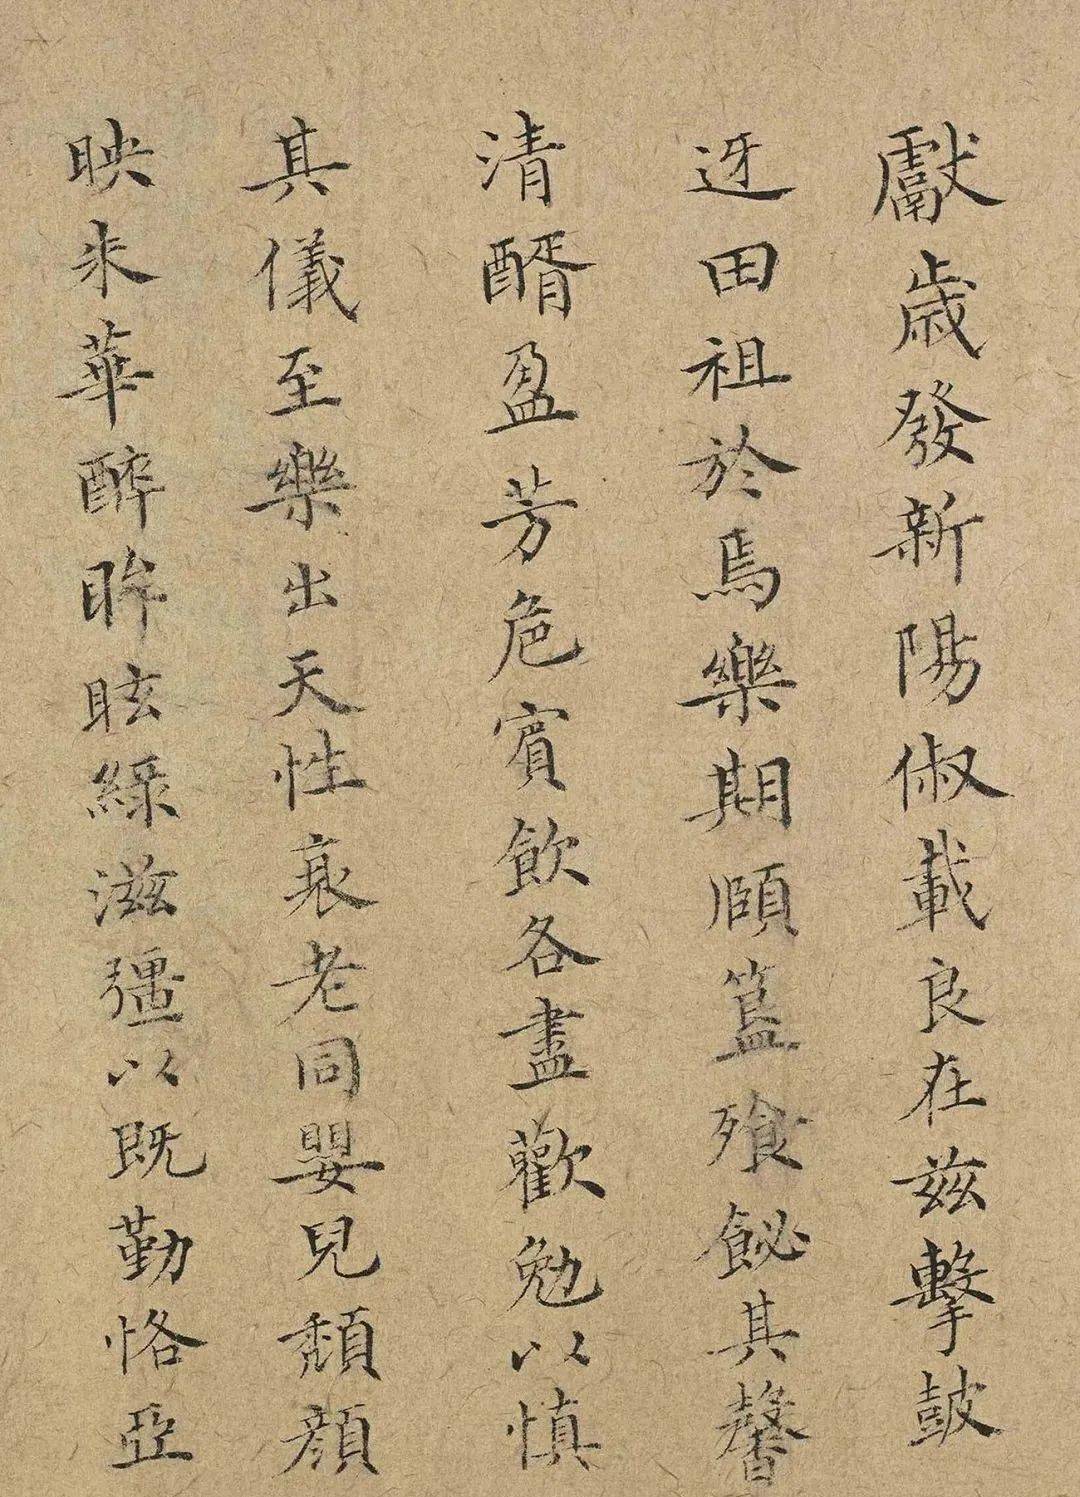 獻歲發新陽俶載良在茲擊鼓
迓田祖於焉樂期頤簋飱飶其馨
清醑盈芳巵賓飲各盡歡勉以慎
其儀至樂出天性衰老同嬰兒頽顏
映朱華醉眸眩綠滋彊以既勤恪亞